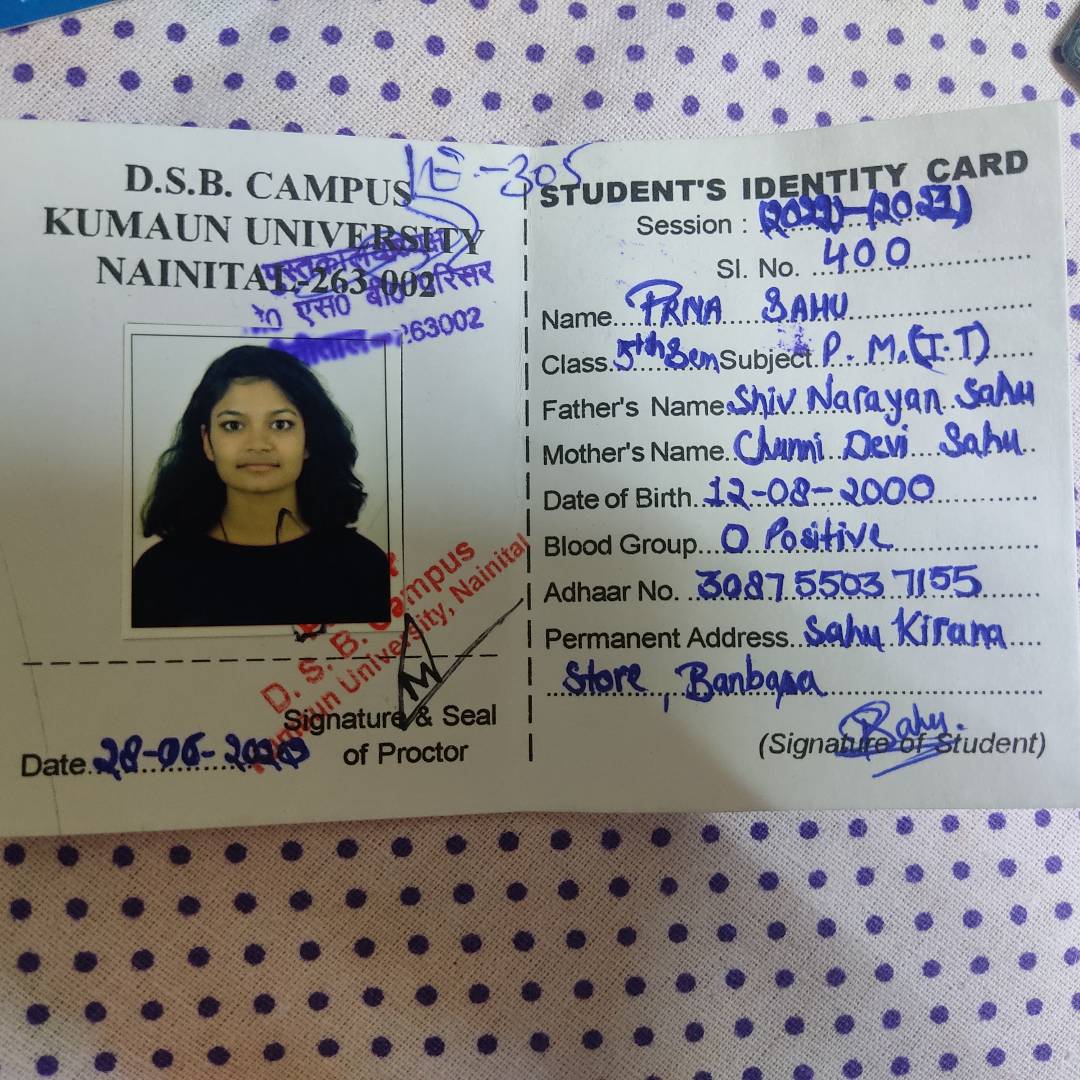 D.S.B. CAMPUS
KUMAUN UNIVERSITY
NAINITAL-263 002
LE-305
पुस्तकालय
एस0 बी0 परिसर
नैनीताल-263002
D. S. B. Campus
Kumaun University, Nainital
Signature & Seal
of Proctor
Date..28-06-2020
STUDENT'S IDENTITY CARD
Session :
Sl. No. 400
Name....PRIYA SAHU
Class.5th Sem Subject.P. M.(I.T)
Father's Name.Shiv Narayan Sahu
Mother's Name..Chunni Devi Sahu
Date of Birth..12-08-2000
Blood Group...O Positive
Adhaar No. ..3087 5503 7155
Permanent Address..Sahu Kirana
Store, Banbasa
Sahu.
(Signature of Student)